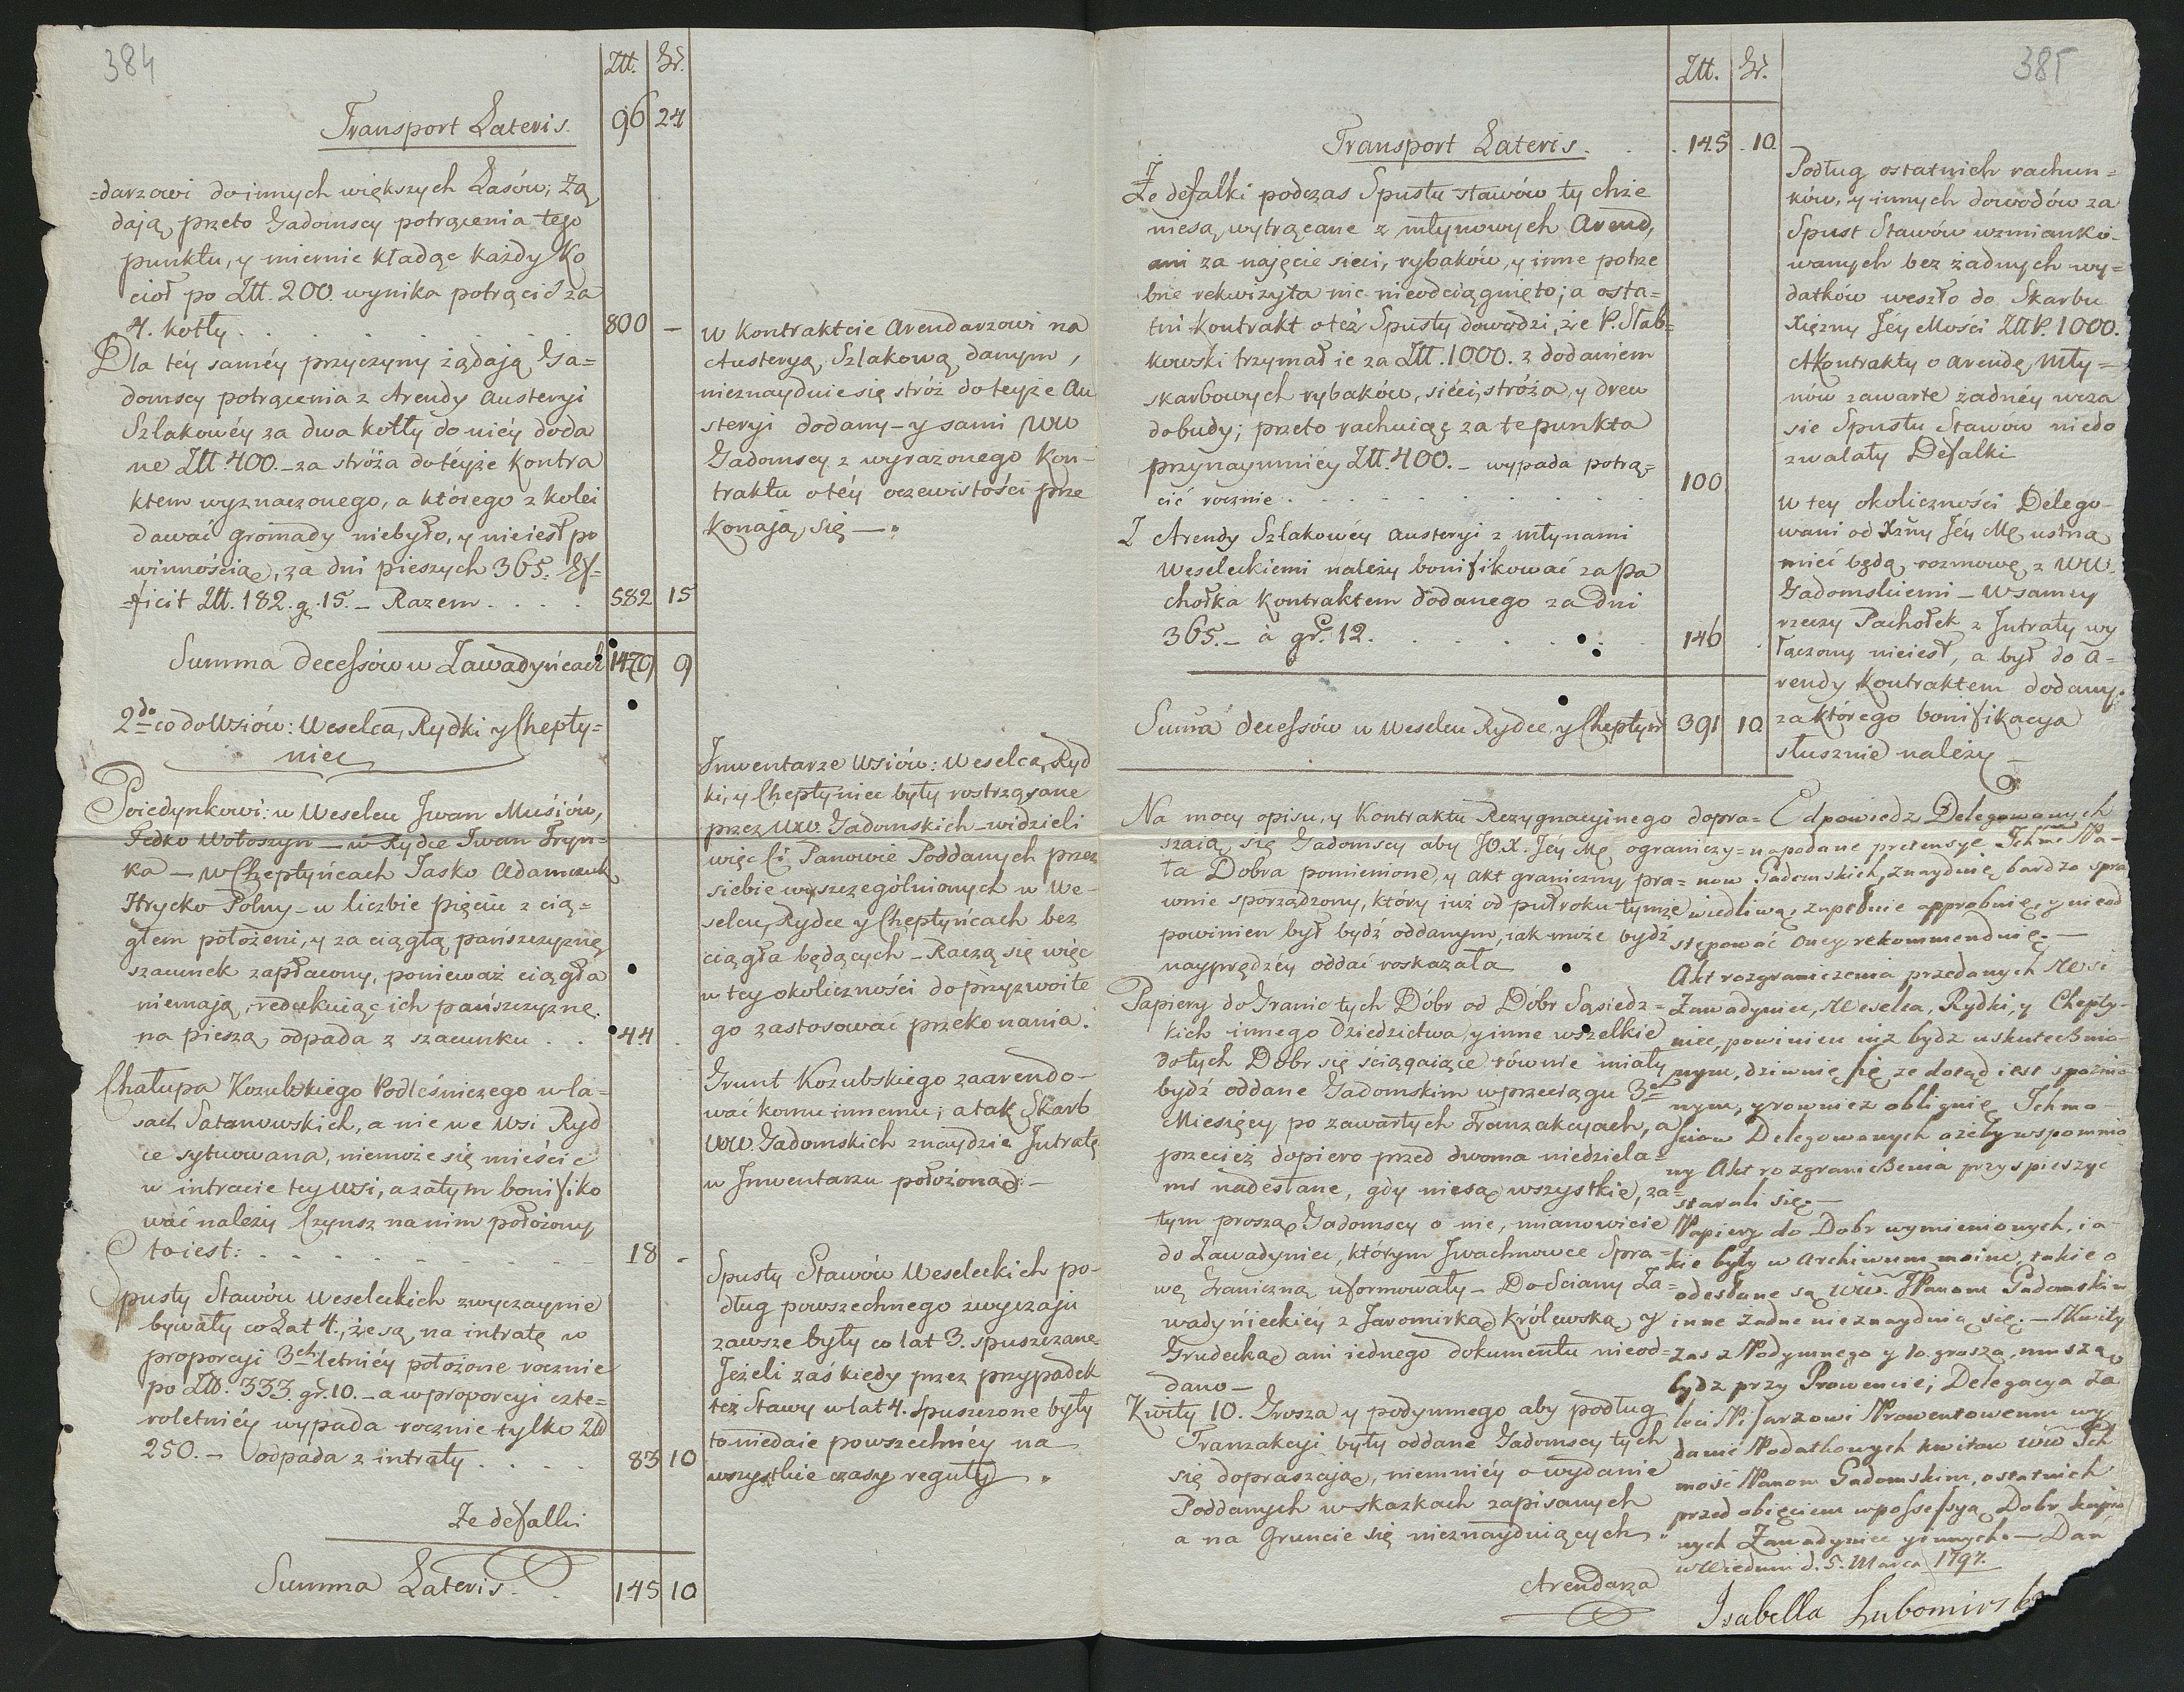 384
Ztt. Gr.
Transport Lateris. 96 24
=darzowi do innych większych Lasów; żą
dają, przeto Gadomscy potrącenia tego
punktu, y miernie kładąc każdy Ko
cioł po Ztt. 200. wynika potrącić za
4. kotły . . . . . . 800 —
Dla téy saméy przyczyny żądają Ga=
domscy potrącenia z Arendy Austeryi
Szlakowéy za dwa kotły do niéy doda
ne Ztt 400. _ za stróża do téyże Kontra
ktem wyznaczonego, a którego z kolei
dawać gromady niebyło, y nieiest po
winnością, za dni pieszych 365. Ef=
=ficit Ztt. 182. g. 15. _ Razem . . . . 582 15
Summa decessów w Zawadyńcach 1479 9
2do co do Wsiów: Weselca, Rydki y Chepty=
niec
Poiedynkowi: w Weselcu Jwan Musiów,
Fedko Wołoszyn — w Rydce Iwan Tryn=
ka — w Cheptyńcach Jasko Adamczuk
Hrycko Polny _ w liczbie pięciu z cią=
głem położeni, y za ciągłą pańszczyznę
szacunek zapłacony, ponieważ ciągła
niemają, redukuiąc ich pańszczyznę
na pieszą, odpada z szacunku . . 44
Chałupa Kozubskiego Podleśniczego w la=
sach Satanowskich, a nie we Wsi Ryd
ce sytuowana, niemoże się mieścić
w intracie tey Wsi, a zatym bonifiko
wać należy Czynsz na nim położony
to iest: . . . . . . . 18 -
Spusty Stawów Weseleckich zwyczaynie
bywały co Lat 4., że są na intratę w
proporcyi 3ch letniéy położone rocznie
po Ztt. 333. gr. 10. _ a w proporcyi czte=
roletniéy wypada rocznie tylko Ztt
250. _ odpada z intraty . . . . 83 10
Ze defalki
Summa Lateris. . 145 10
w Kontrakcie Arendarzowi na
Austeryą Szlakową danym,
nieznayduie się stróż do teyże Au
steryi dodany _ y sami WW
Gadomscy z wyrażonego Kon-
traktu o téy oczewistości prze
konają się —.
Jnwentarze Wsiów: Weselca, Ryd
ki, y Cheptyniec były rostrząsane
przez WW. Gadomskich _ widzieli
więc Ci Panowie Poddanych przez
siebie wyszczególnionych w We-
selcu, Rydce y Cheptyńcach bez
ciągła będących _ Raczą się więc
w tey okoliczności do przyzwoite
go zastosować przekonania.
Grunt Kozubskiego zaarendo-
wać komu innemu; a tak Skarb
WW. Gadomskich znaydzie Jntratę
w Jnwentarzu położoną. _
Spusty Stawów Weseleckich po-
dług powszechnego zwyczaju
zawsze były co lat 3. spuszczane
Jeżeli zaś kiedy przez przypadek
też Stawy w lat 4. spuszczone były
to niedaie powszechnéy na
wszystkie czasy reguły.
385
Ztt. Gr.
Transport Lateris. . . 145 . 10.
Że defalki podczas Spustu stawów tychże
niesą wytrącane z młynowych Arend,
ani za najęcie sieci, rybaków, y inne potrze
bne rekwizyta nic nieodciągnięto; a osta=
tni Kontrakt o też Spusty dowodzi, że P. Słab=
kowski trzymał ie za Ztt. 1000. z dodaniem
skarbowych rybaków, siéci, stróża, y drew
do budy; przeto rachuiąc za te punkta
przynaymniéy Ztt. 400. _ wypada potrą=
cić rocznie . . . . . . . . 100
Z Arendy Szlakowéy Austeryi z młynami
Weseleckiemi należy bonifikować za pa
chołka Kontraktem dodanego za dni
365. _ à gr. 12. . . . . . . 146
Suma decessów w Weselcu Rydce, y Cheptyń 391 10
Podług ostatnich rachun=
ków, y innych dowodów za
Spust Stawów wzmianko-
wanych bez żadnych wy=
datków weszło do Skarbu
Xiężny Jéy Mości Ztt P. 1000.
A Kontrakty o Arendę Mły=
nów zawarte żadnéy wcza
sie Spustu Stawów niedo
zwalały Defalki
W tey okoliczności Delego-
wani od Xżny Jéy Mę ustną
mieć będą rozmowę z WW.
Gadomskiemi _ W samey
rzeczy Pachołek z Jntraty wy
łączony nieiest, a był do A=
rendy Kontraktem dodany.
za którego bonifikacya
słusznie należy _
Na mocy opisu, y Kontraktu Rezygnacyinego dopra=
szaią się Gadomscy aby JO. X. Jéy Mę ograniczy=
ła Dobra pomienione, y akt graniczny pra=
wnie sporządzony, który iuż od puł roku tymże
powinien był bydź oddanym, iak może bydź
nayprędzéy oddać roskazała
Papiery do Granic tych Dóbr od Dóbr Sąsiedz=
kich innego dziedzictwa, y inne wszelkie
do tych Dobr się ściągaiące równie miały
bydź oddane Gadomskim w przeciągu 3ch
Miesięcy po zawartych Tranzakcyach, a
przecież dopiero przed dwoma niedziela=
mi nadesłane, gdy niesą wszystkie, za=
tym proszą Gadomscy o nie, mianowicie
do Zawadyniec, którym Jwachnowce Spra=
wę Graniczną uformowały _ Do Sciany Za=
wadynieckiéy z Jaromirką Królewską y
Grudecką ani iednego dokumentu nieod=
dano _
Kwity 10. Grosza y podymnego aby podług
Tranzakcyi były oddane Gadomscy tych
się dopraszają, niemniéy o wydanie
Poddanych w skazkach zapisanych
a na Gruncie się nieznayduiących,
Arendarza
Odpowiedz Delegowanych
na podane pretensye Ichmć Pa-
now Gadomskich, znayduię bardzo spra
wiedliwą, zupełnie approbuię, y nieod
stępować oney rekommenduię. —
Akt rozgraniczenia przedanych Wsi
Zawadyniec, Weselca, Rydki, y Chepty-
niec, powinien iuż bydz uskutecznio
nym, dziwuię się, ze dotąd iest spaznio
nym, y rowniez obliguię Ichmo-
sciow Delegowanych azeby wspomnio
ny Akt rozgraniczenia przyspieszyc
starali się. —
Papiery do Dobr wymienionych, ia-
kie były w Archiwum moim, takie o
odesłane są WW. Panom Gadomskim
inne żadne nieznaydują się. — Kwity
zas z Podymnego y 10. grosza, muszą
bydz przy Prowencie; Delegacya za
leci Pisarzowi Prowentowemu wy
danie Podatkowych kwitow WW Ich
mość Panom Gadomskim, ostatnich
przed obięciem w possessyą Dobr kupio
nych Zawadyniec y innych. — Dan
w Wiedniu d. 5. Marca 1797.
Isabella Lubomirska